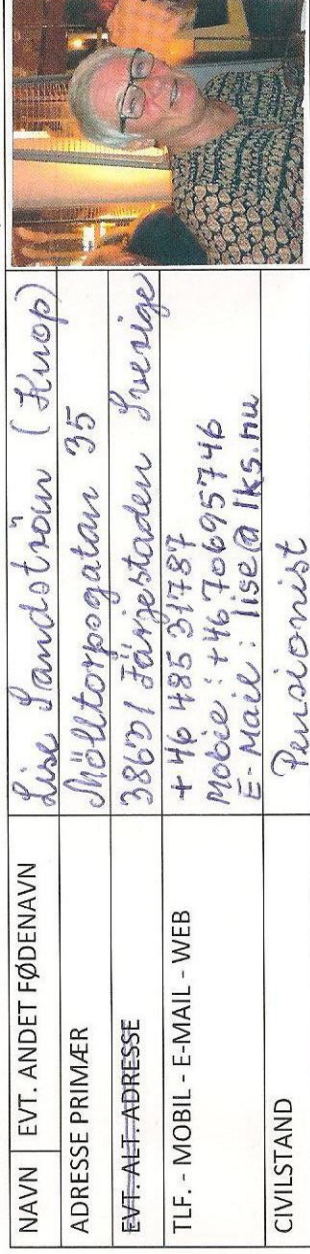 NAVN EVT. ANDET FØDENAVN Lise Sandström (Knop)
ADRESSE PRIMÆR Mölltorpsgatan 35
EVT. ALT. ADRESSE 38631 Färjestaden Sverige
TLF. - MOBIL - E-MAIL - WEB +46 485 31787
Mobile: +46 70695746
E-Mail: lise@lks.nu
CIVILSTAND Pensionist